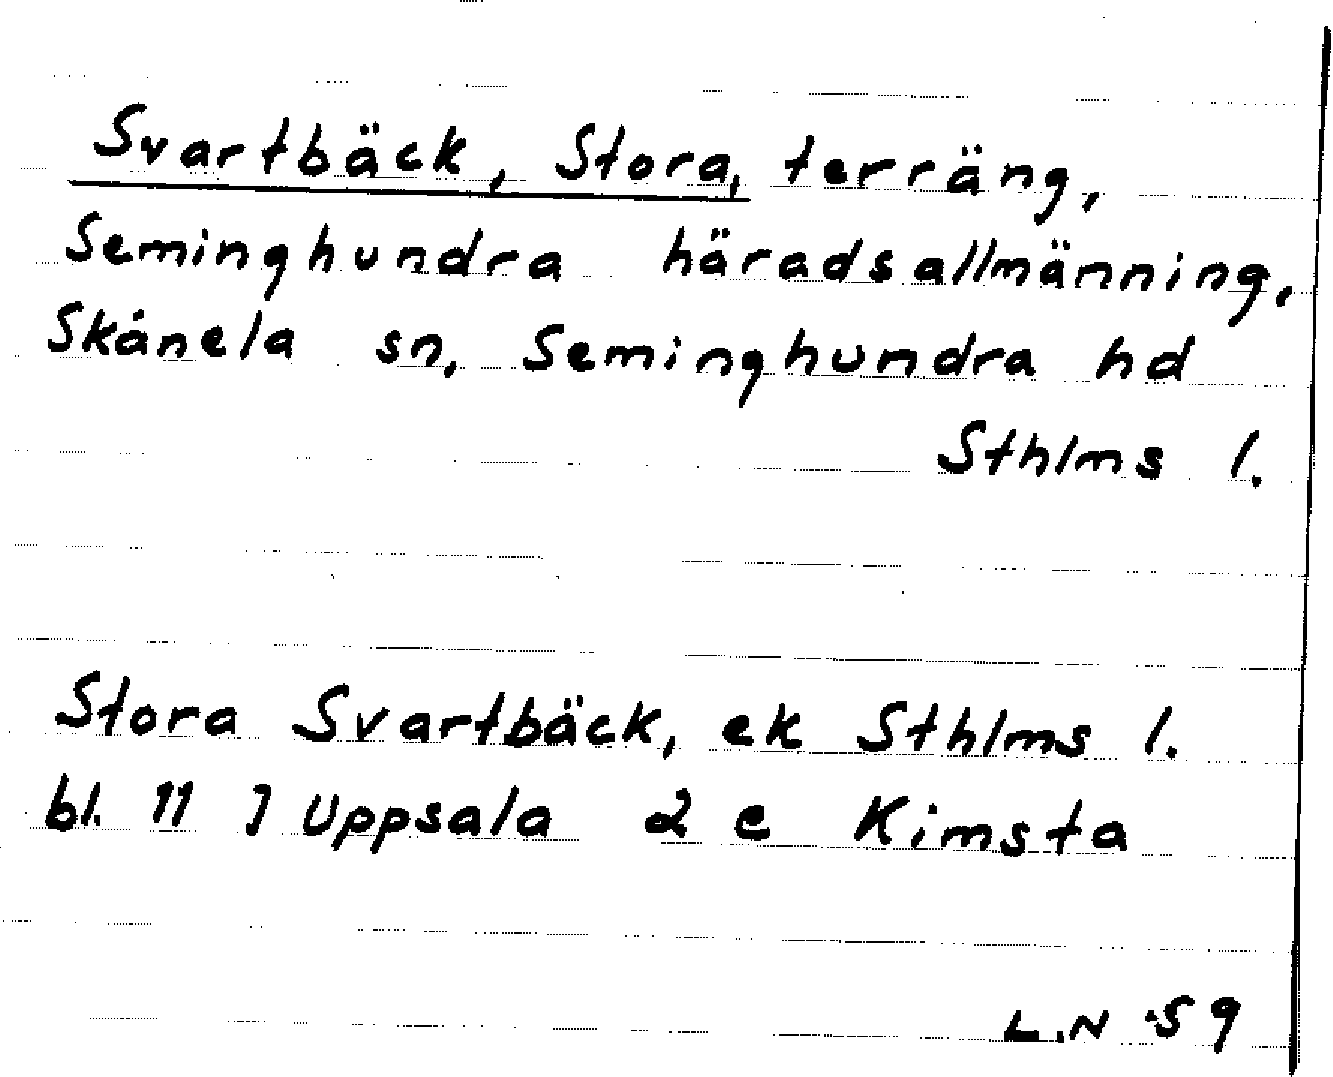 Svartbäck, Stora, terräng,
Seminghundra häradsallmänning,
Skånela sn, Seminghundra hd
Sthlms l.
Stora Svartbäck, ek Sthlms l.
bl. 11 J Uppsala 2 e Kimsta
L.N 59